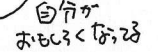 自分が
おもしろくなってる